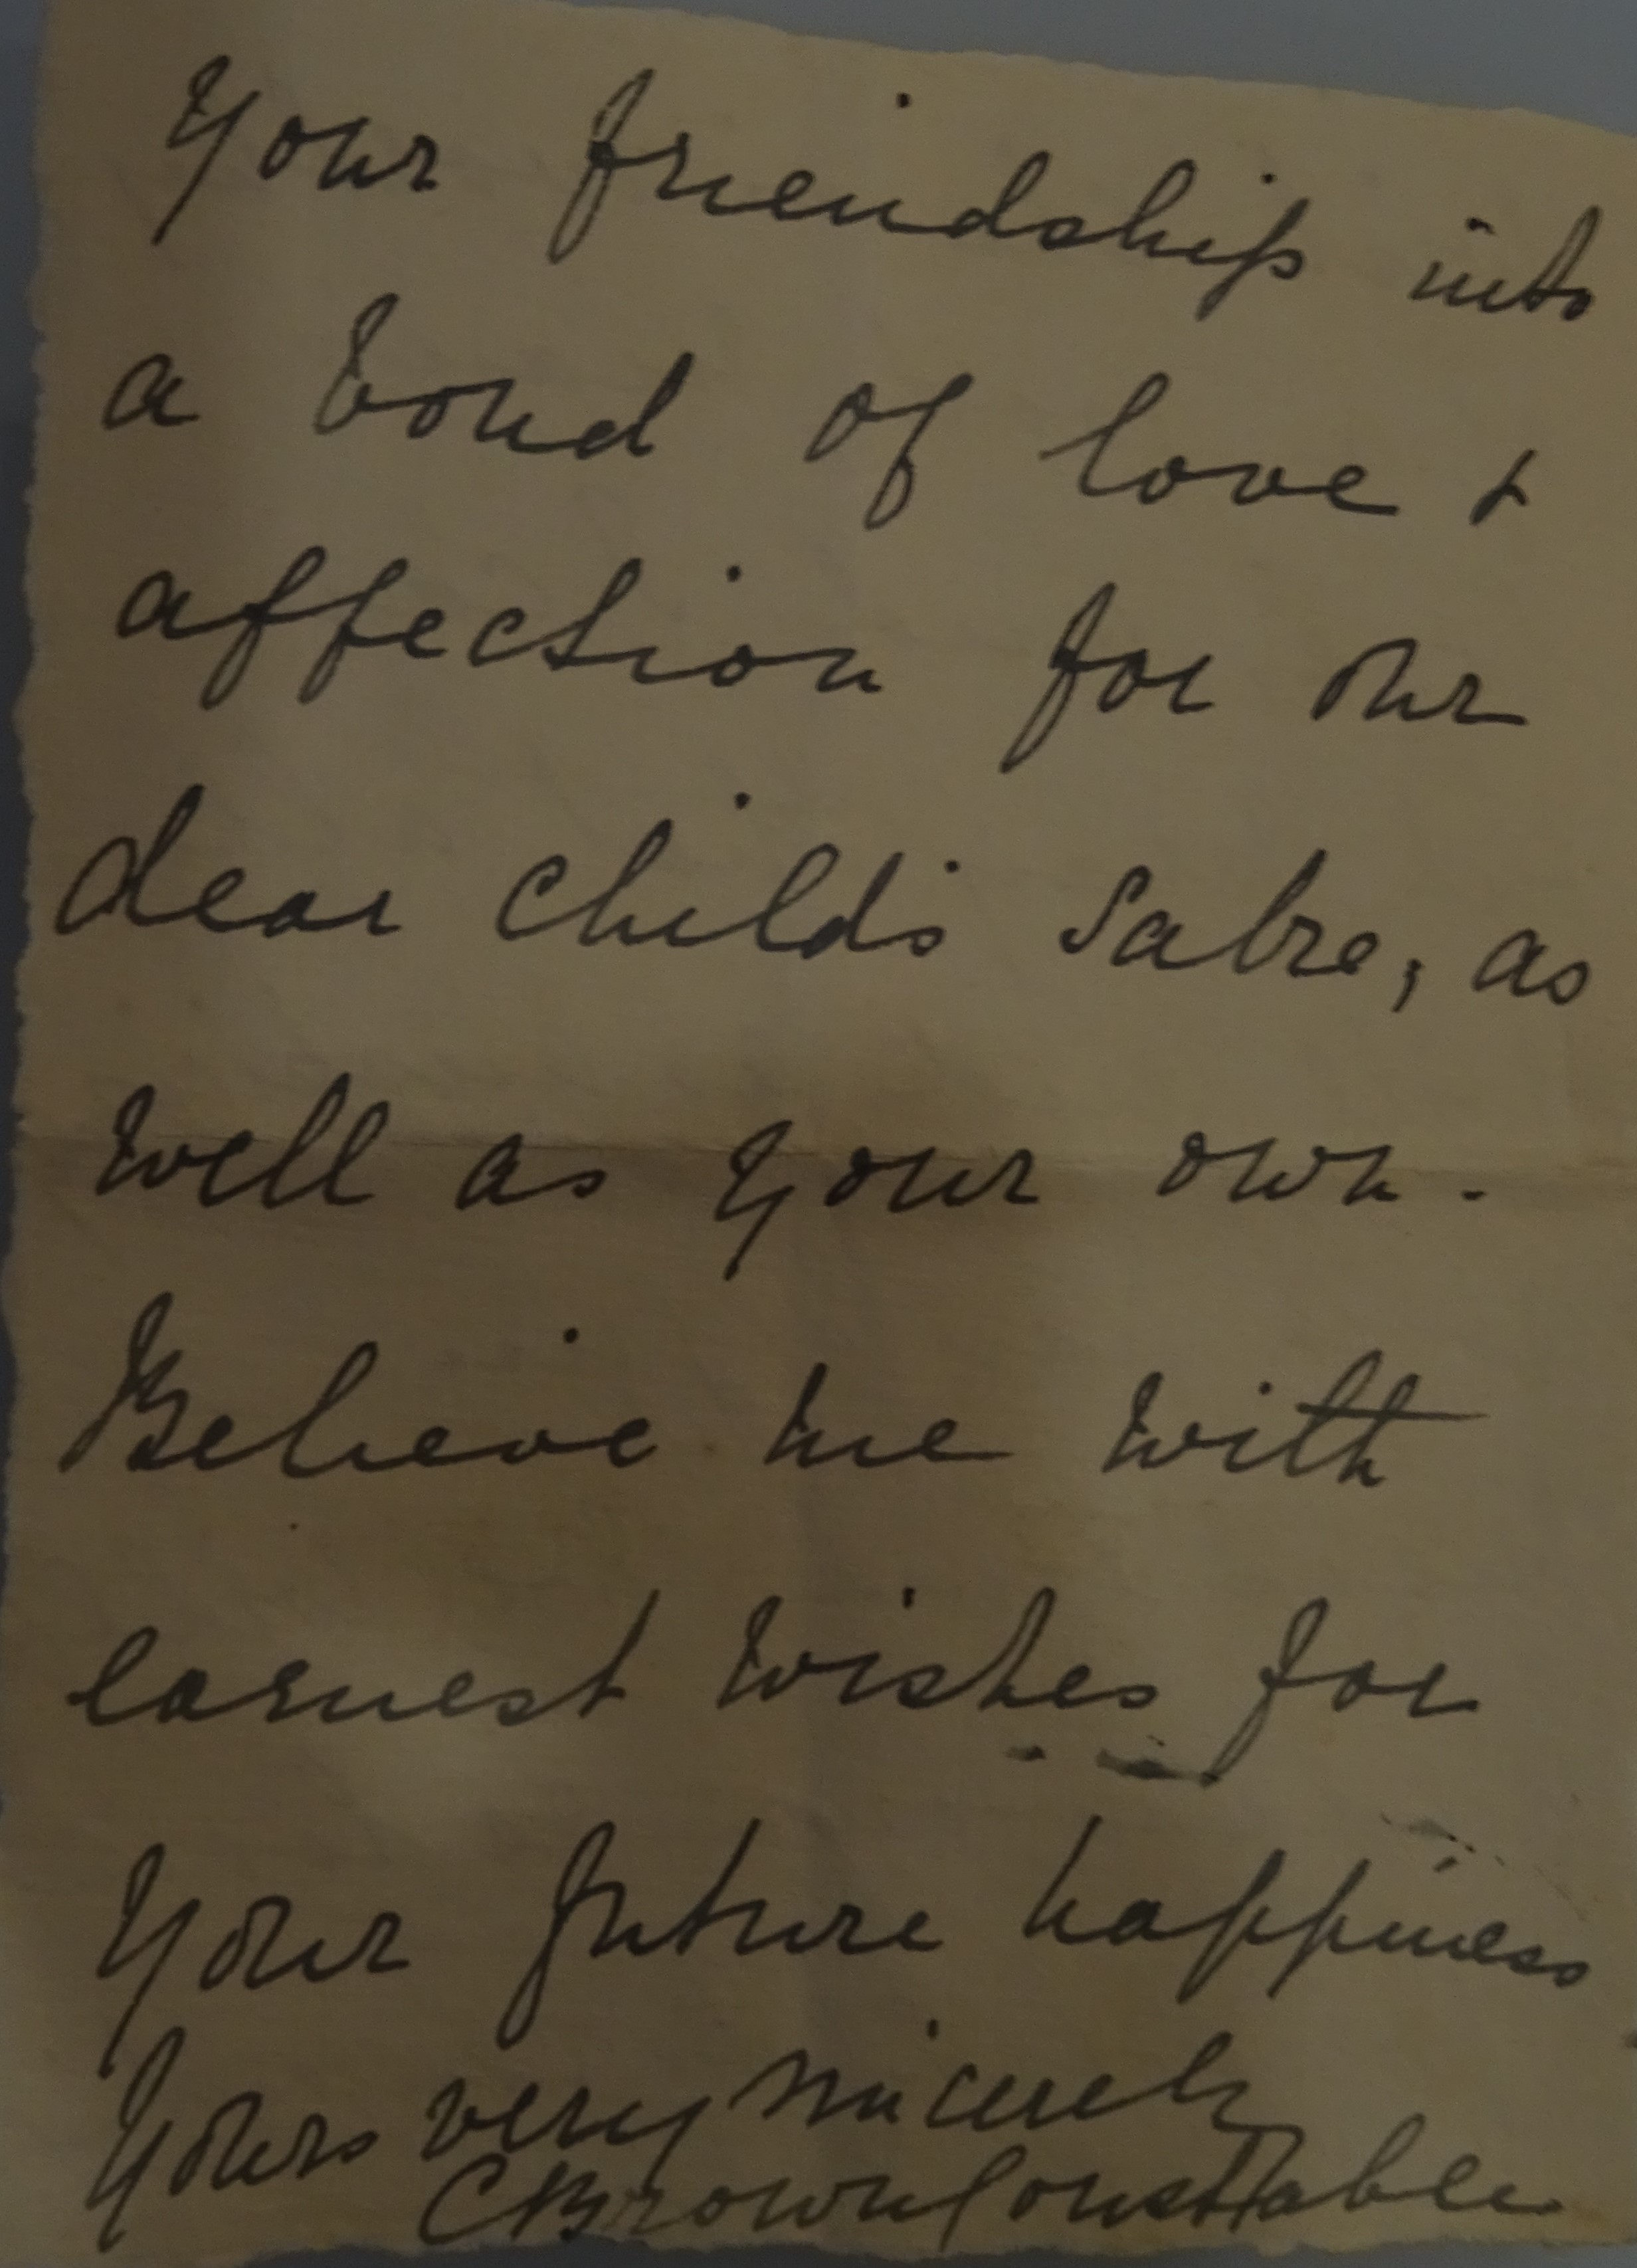 your friendship into
a bond of love &
affection for our
dear child's sake, as
well as your own.
Believe me with
earnest wishes for
your future happiness
Yours very sincerely
C Brown Constable